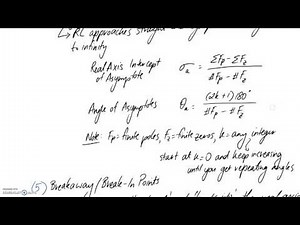 ↳ RL approaches straight
to infinity
Real Axis Intercept
of Asymptote
σₐ = (ΣFp - ΣFz) / (#Fp - #Fz)
Angle of Asymptotes
θₐ = (2k+1)180° / (#Fp - #Fz)
Note: Fp = finite poles, Fz = finite zeros, k = any integer
start at k=0 and keep increasing
until you get repeating angles
(5) Breakaway/Break-In Points